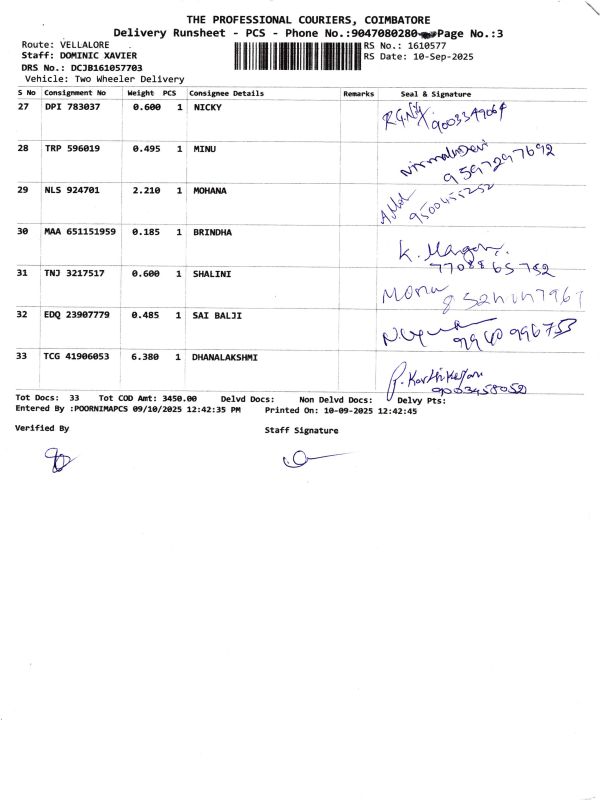 THE PROFESSIONAL COURIERS, COIMBATORE
Delivery Runsheet - PCS - Phone No.:9047080280 Page No.:3
Route: VELLALORE RS No.: 1610577
Staff: DOMINIC XAVIER RS Date: 10-Sep-2025
DRS No.: DCJB161057703
Vehicle: Two Wheeler Delivery
S No Consignment No Weight PCS Consignee Details Remarks Seal & Signature
27 DPI 783037 0.600 1 NICKY
9003349064
28 TRP 596019 0.495 1 MINU
Nirmala Devi
9597297692
29 NLS 924701 2.210 1 MOHANA
9500455252
30 MAA 651151959 0.185 1 BRINDHA
K.
7708865752
31 TNJ 3217517 0.600 1 SHALINI
32 EDQ 23907779 0.485 1 SAI BALJI
9940996753
33 TCG 41906053 6.380 1 DHANALAKSHMI
P. Karthikeyan
9003458052
Tot Docs: 33 Tot COD Amt: 3450.00 Delvd Docs: Non Delvd Docs: Delvy Pts:
Entered By :POORNIMAPCS 09/10/2025 12:42:35 PM Printed On: 10-09-2025 12:42:45
Verified By Staff Signature